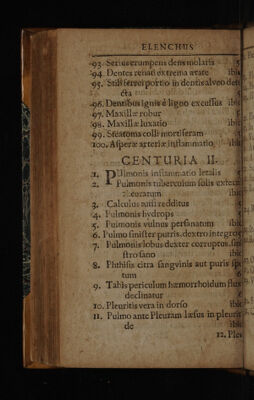 ELENCHUS
93. Serius erumpens dens molaris 5
94. Dentes renati extrema ætate ibid
95. Stili ferrei portio in dentis alveo dete-
cta
96. Dentibus ignis è ligno excussus ibi
97. Maxillæ robur 5
98. Maxillæ luxatio ibi
99. Steatoma colli mortiferum
100. Asperæ arteriæ inflammatio ibi
CENTURIA II.
1. Pulmonis inflammatio letalis 5
2. Pulmonis tuberculum solis extra
3. Calculus tussi redditus 5
4. Pulmonis hydrops
5. Pulmonis vulnus persanatum ibi
6. Pulmo sinister putris, dextro integro
7. Pulmonis lobus dexter corruptus, sini
stro sano ibi
8. Phthisis citra sangvinis aut puris spu
tum 6
9. Tabis periculum hæmorrhoidum flux
declinatur
10. Pleuritis vera in dorso ibi
11. Pulmo ante Pleuram læsus in pleuriti
de ibi
12. Pleu